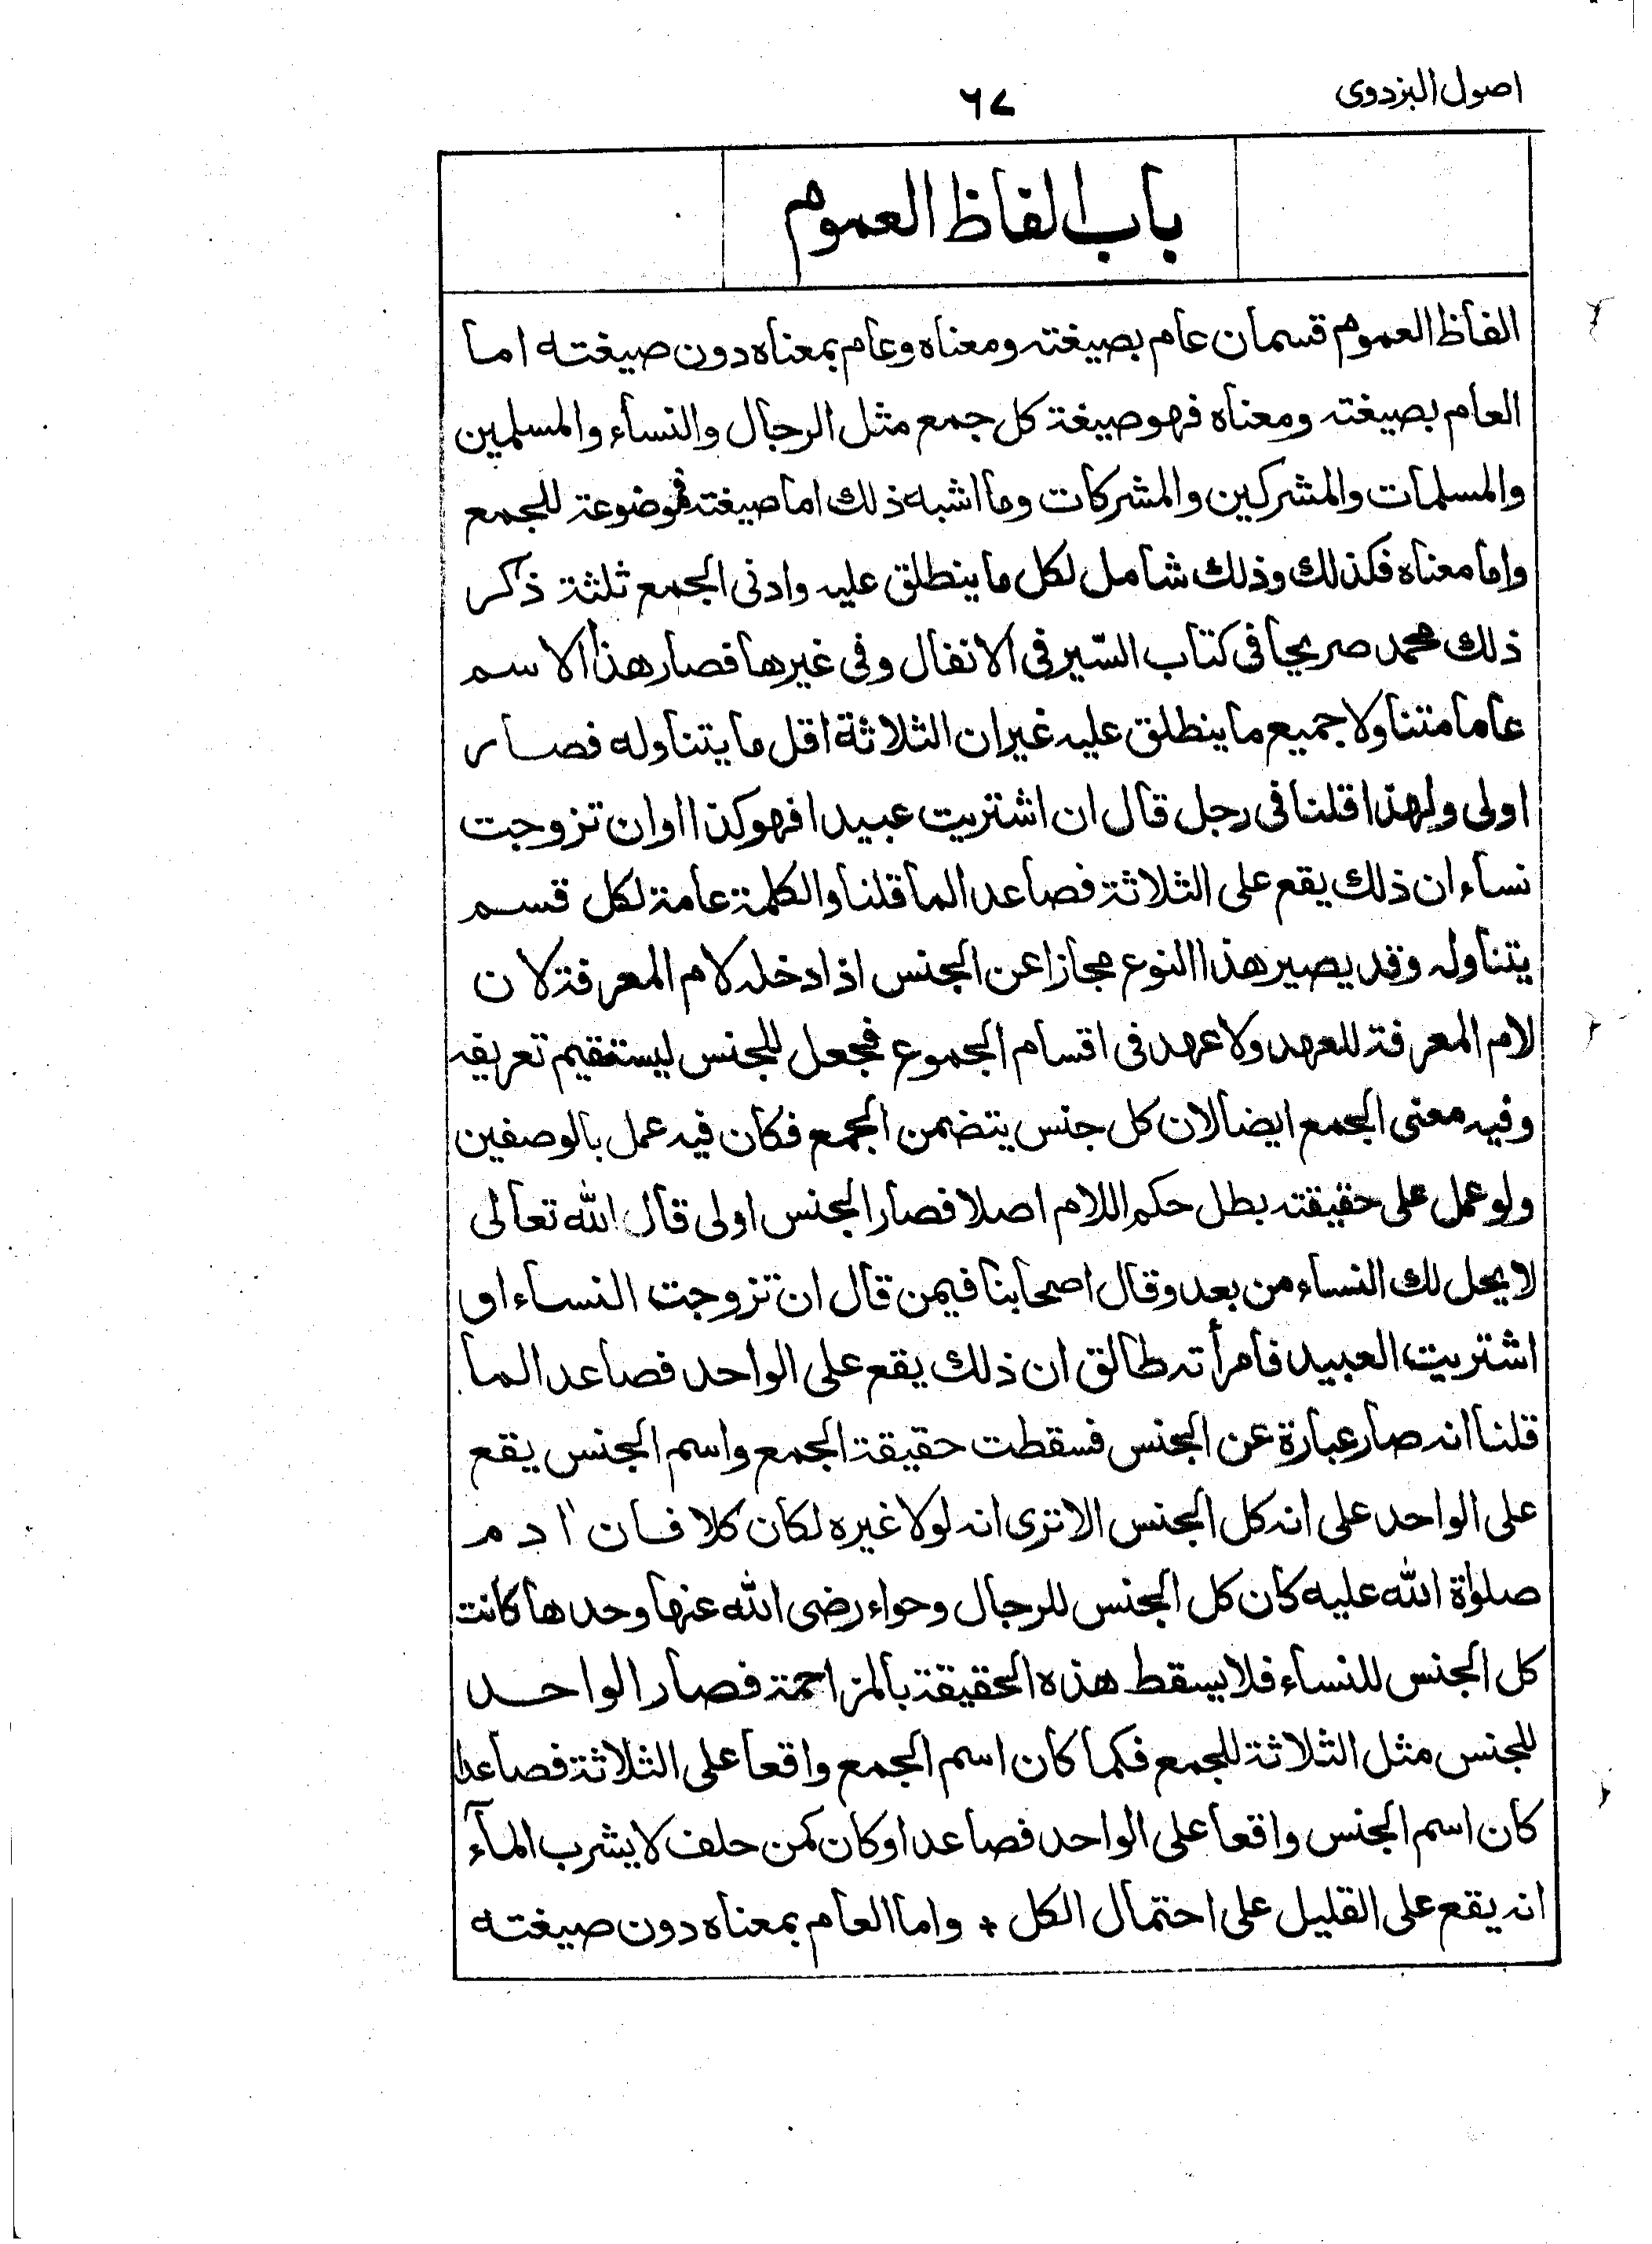 اصول البزدوی
٦٧
باب الفاظ العموم
الفاظ العموم قسمان عام بصیغته ومعناه وعام بمعناه دون صیغته اما
العام بصیغته ومعناه فهو صیغة كل جمع مثل الرجال والنساء والمسلمین
والمسلمات والمشركین والمشركات وما اشبه ذلك اما صیغته فموضوعة للجمع
واما معناه فكذلك وذلك شامل لكل ما ینطلق علیه وادنی الجمع ثلثة ذكر
ذلك محمد صریحا فی كتاب السّیر فی الانفال وفی غیرها فصار هذا الاسم
عاما متناولا جمیع ما ینطلق علیه غیر ان الثلاثة اقل ما یتناوله فصار
اولی ولهذا قلنا فی رجل قال ان اشتریت عبیدا فهو كذا او ان تزوجت
نساء ان ذلك یقع علی الثلاثة فصاعدا لما قلنا والكلمة عامة لكل قسم
یتناوله وقد یصیر هذا النوع مجازا عن الجنس اذا دخله لام المعرفة لان
لام المعرفة للعهد ولا عهد فی اقسام الجموع فجعل للجنس لیستقیم تعریفه
وفیه معنی الجمع ایضا لان كل جنس یتضمن الجمع فكان فیه عمل بالوصفین
ولو عمل علی حقیقته بطل حكم اللام اصلا فصار الجنس اولی قال الله تعالی
لا یحل لك النساء من بعد وقال اصحابنا فیمن قال ان تزوجت النساء او
اشتریت العبید فامرأته طالق ان ذلك یقع علی الواحد فصاعدا لما
قلنا انه صار عبارة عن الجنس فسقطت حقیقة الجمع واسم الجنس یقع
علی الواحد علی انه كل الجنس الا تری انه لولا غیره لكان كلا فان اٰدم
صلوٰة الله علیه كان كل الجنس للرجال وحواء رضی الله عنها وحدها كانت
كل الجنس للنساء فلا یسقط هذه الحقیقة بالمزاحمة فصار الواحد
للجنس مثل الثلاثة للجمع فكما كان اسم الجمع واقعا علی الثلاثة فصاعدا
كان اسم الجنس واقعا علی الواحد فصاعدا وكان كمن حلف لا یشرب المآء
انه یقع علی القلیل علی احتمال الكل + واما العام بمعناه دون صیغته